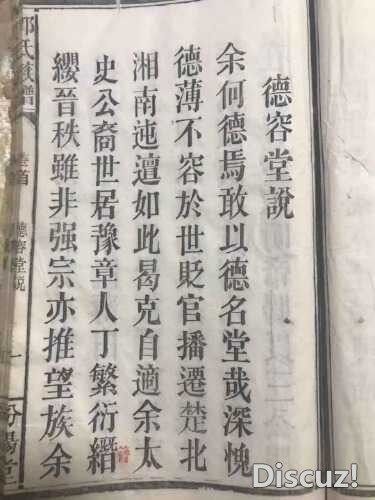 德容堂説
余何德焉敢以德名堂哉深愧
德薄不容於世貶官播遷楚北
湘南迍邅如此曷克自適余太
史公裔世居豫章人丁繁衍縉
纓晉秩雖非强宗亦推望族余
氏族譜
卷首
德容堂説
一
汾陽堂
Discuz!